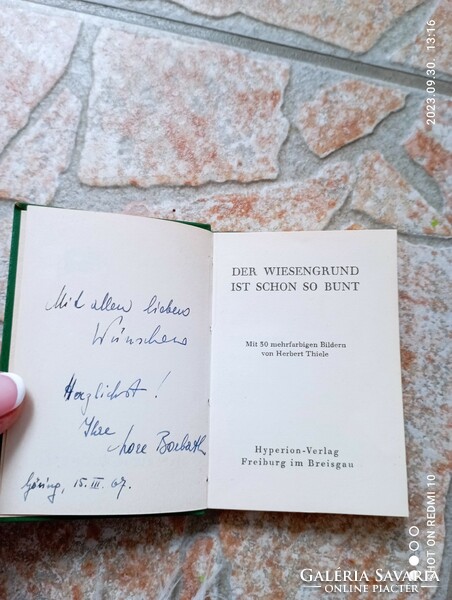 Mit allen lieben
Wünschen
Herzlichst!
Ihre
15. III. 67.
DER WIESENGRUND
IST SCHON SO BUNT
Mit 30 mehrfarbigen Bildern
von Herbert Thiele
Hyperion-Verlag
Freiburg im Breisgau
2023.09.30. 13:16
SHOT ON REDMI 10
GALÉRIA SAVARIA
ONLINE PIACTÉR